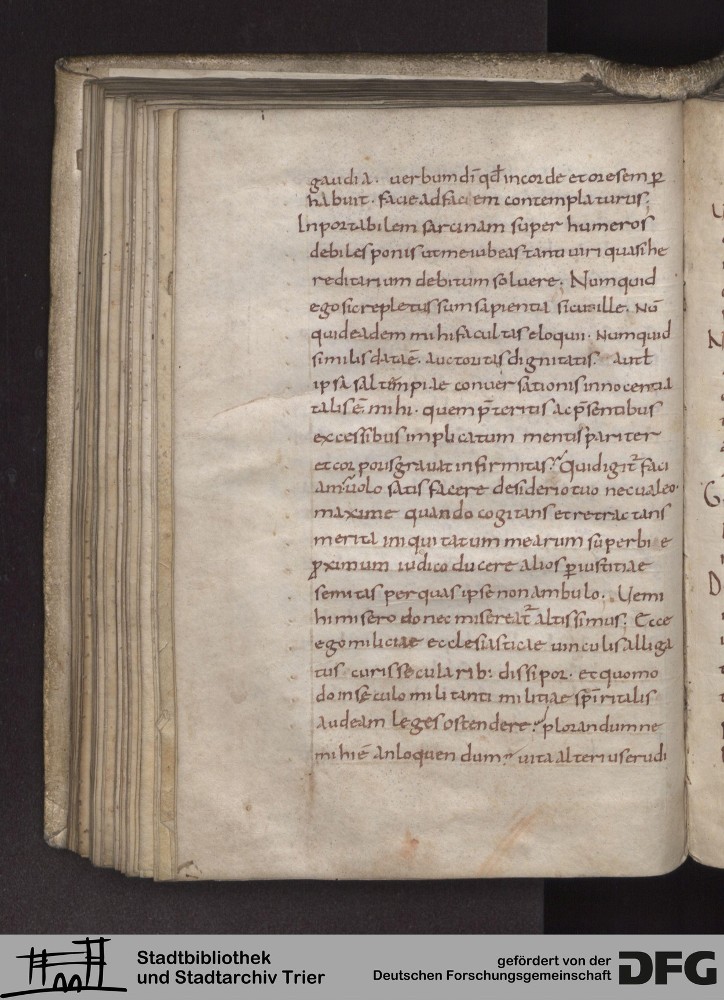 gaudia. uerbum dī qđ in corde et ore semꝑ
habuit. facie ad faciem contemplaturus.
Inportabilem sarcinam super humeros
debiles ponis ut me iubeas tanti uiri quasi he
reditarium debitum soluere. Numquid
ego sic repletus sum sapientia sicut ille. Nū
quid eadem mihi facultas eloquii. Numquid
similis data ē. auctoritas dignitatis. aut
ipsa saltem piae conuersationis innocentia
talis ē mihi. quem p̄teritis ac p̄sentibus
excessibus implicatum mentis pariter
et corporis grauat infirmitas? Quid igit̄ faci
am? uolo satisfacere desiderio tuo nec ualeo.
maxime quando cogitans et retractans
merita iniquitatum mearum superbi e
ꝓximum iudico ducere alios ꝑ iustitiae
semitas per quas ipse non ambulo. Ue mi
hi misero donec misereat̄ altissimus. Ecce
ego miliciae ecclesiasticae uinculis alliga
tus curis secularib: dissipor. et quomo
do in seculo militanti militiae sp̄iritalis
audeam leges ostendere? plorandum ne
mihi ē an loquendum? uita alterius erudi
Stadtbibliothek
und Stadtarchiv Trier
gefördert von der
Deutschen Forschungsgemeinschaft
DFG